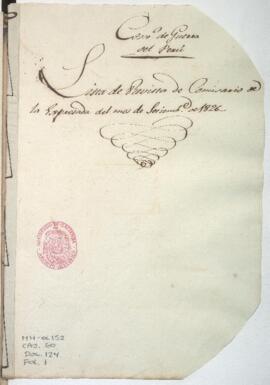 de Guerra
del Perú
Lista de Revista de Comisario de
la Expresada del mes de Setiembe. de 1826.
MH-OL152
CAJ. 50
DOC. 124
FOL. 1